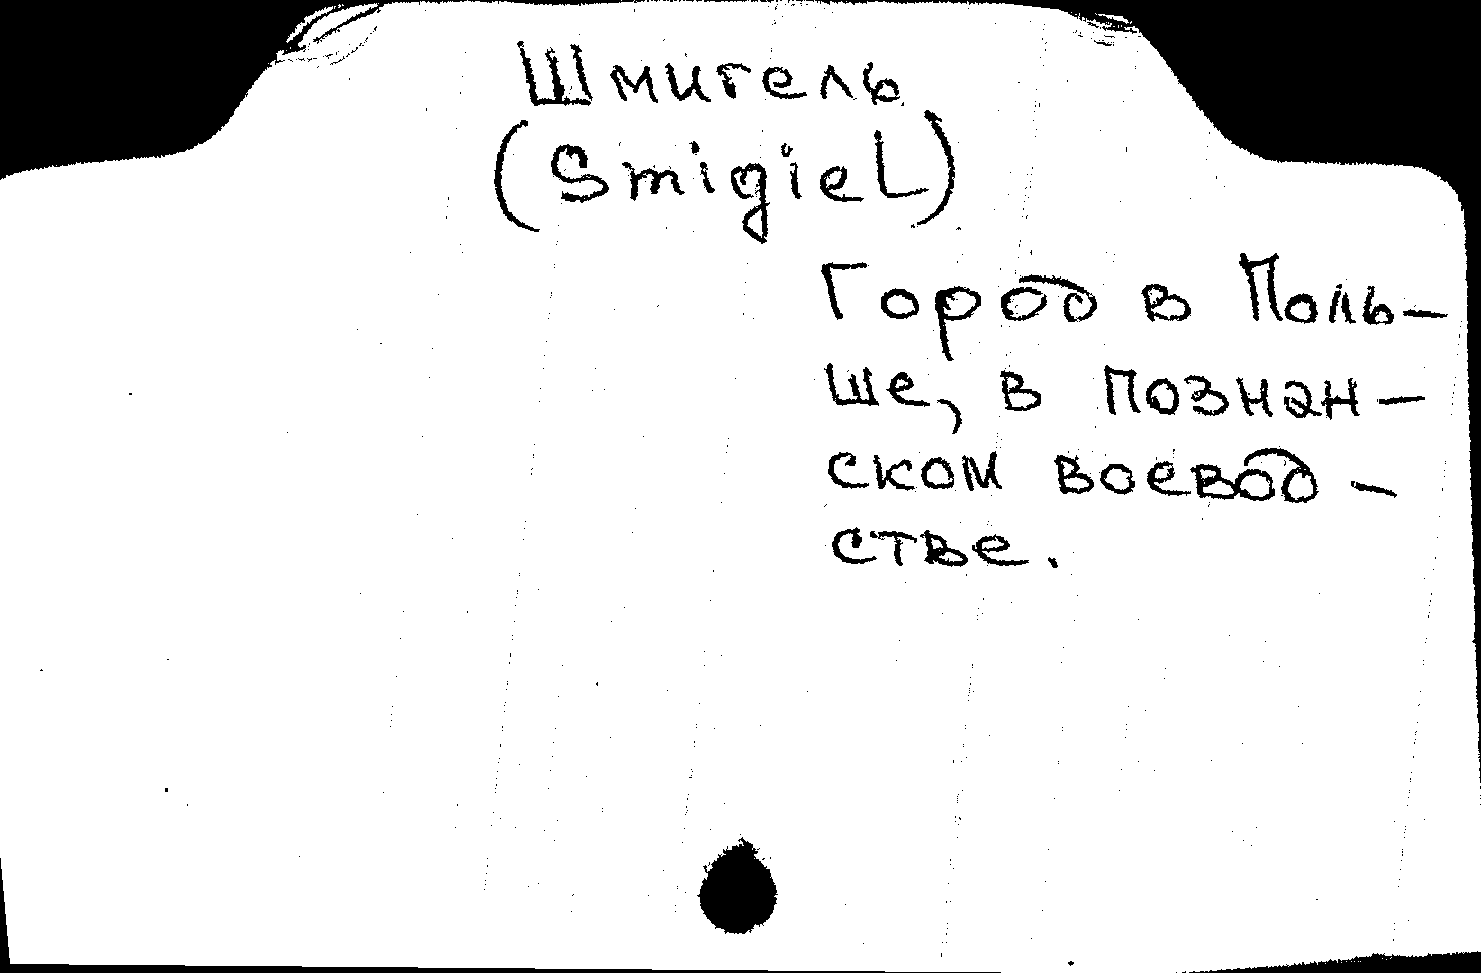 Шмигель
(Smigiel)
Город в Поль-
ше, в познан-
ском воевод-
стве.